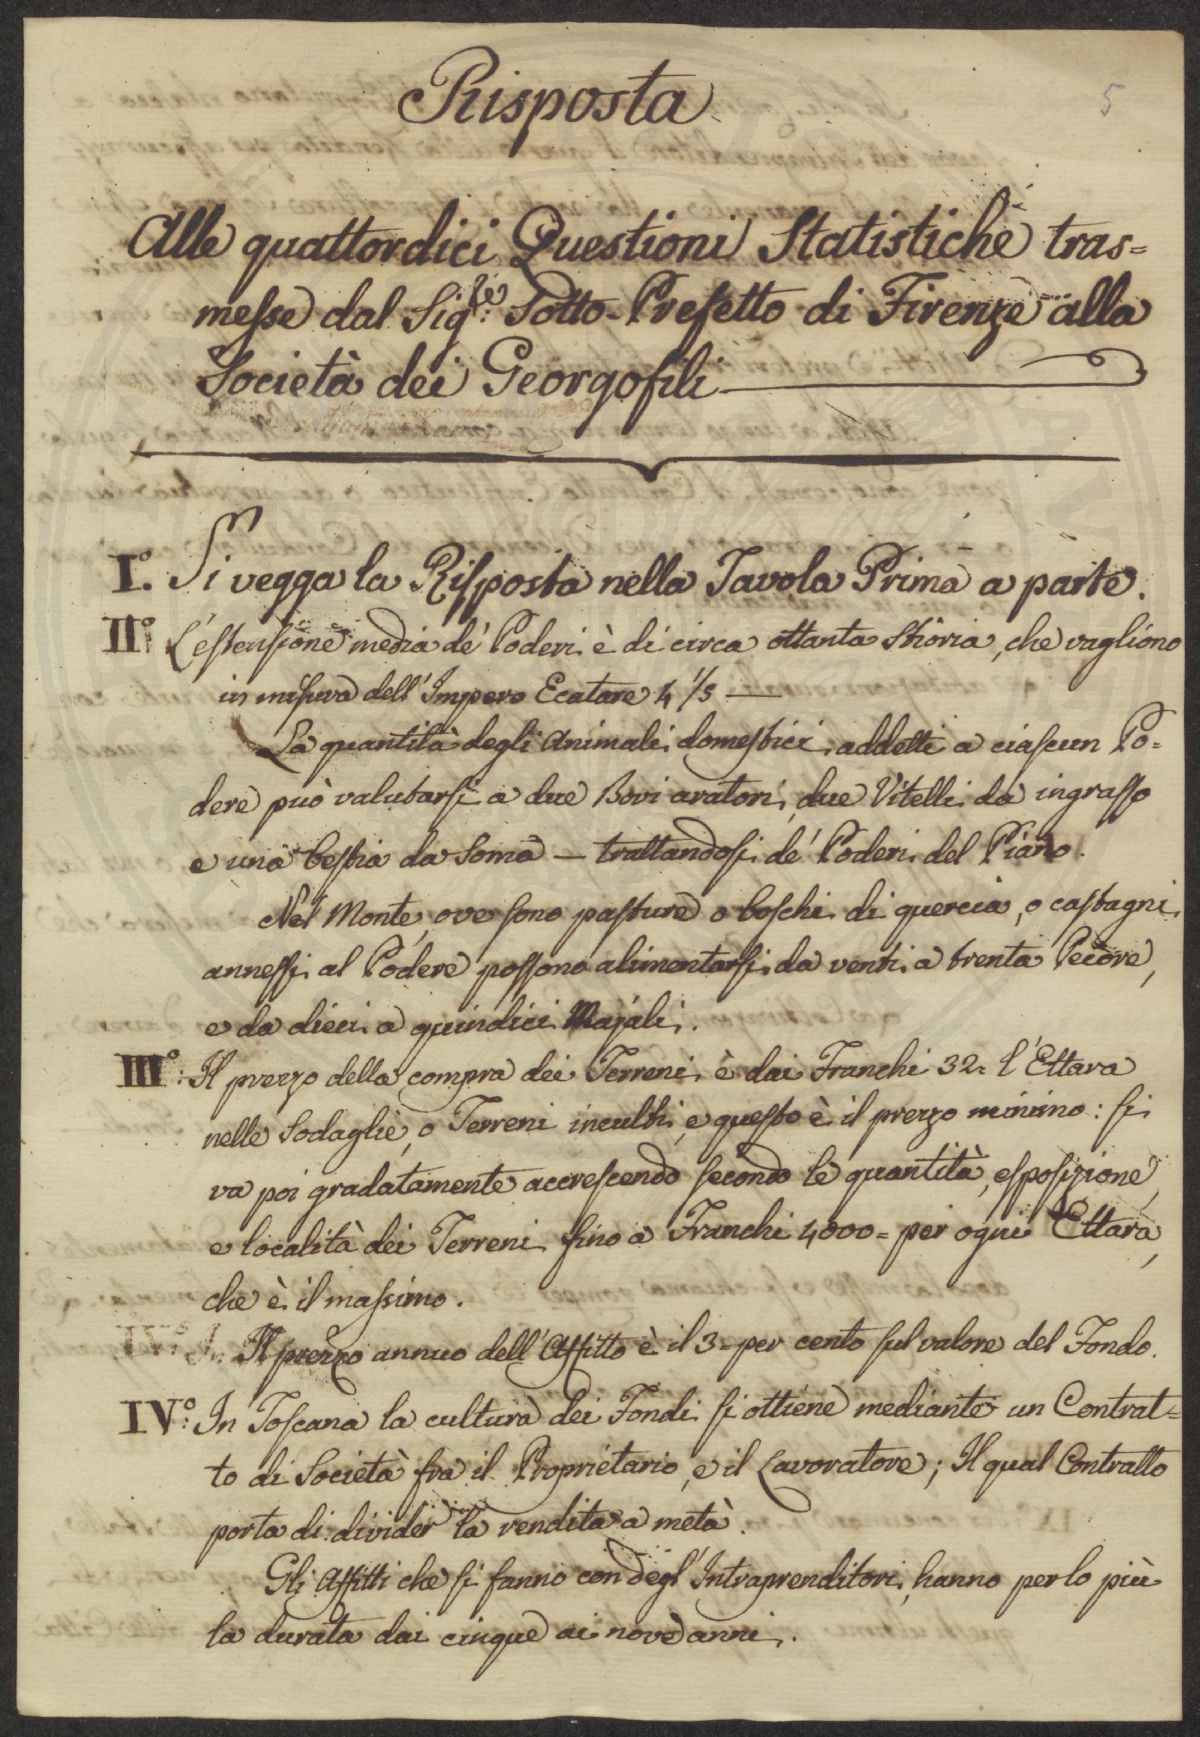 5
Risposta
Alle quattordici Questioni Statistiche tras=
messe dal Sig.re Sotto-Prefetto di Firenze alla
Società dei Georgofili
I.° Si vegga la Risposta nella Tavola Prima a parte.
II.° L'estensione media de' Poderi è di circa ottanta Stiora, che vagliono
in misura dell'Impero Ecatare 4 1/5 —
La quantità degli Animali domestici addetti a ciascun Po=
dere può valutarsi a due Bovi aratori, due Vitelli da ingrasso
e una bestia da Soma — trattandosi de' Poderi del Piano.
Nel Monte, ove sono pasture o boschi di quercia, o castagni
annessi al Podere possono alimentarsi da venti a trenta Pecore,
e da dieci a quindici Majali.
III.° Il prezzo della compra dei Terreni è dai Franchi 32= l'Ettara
nelle Sodaglie, o Terreni inculti, e questo è il prezzo minimo: si
va poi gradatamente accrescendo secondo le quantità, esposizione,
e località dei Terreni fino a Franchi 4000= per ogni Ettara,
che è il massimo.
IV.° In Il prezzo annuo dell'Affitto è il 3= per cento sul valore del Fondo.
IV.° In Toscana la cultura dei Fondi si ottiene mediante un Contrat=
to di Società fra il Proprietario, e il Lavoratore; Il qual Contratto
porta di divider la vendita a metà.
Gli Affitti che si fanno con degl'Intraprenditori, hanno per lo più
la durata dai cinque ai nove anni.